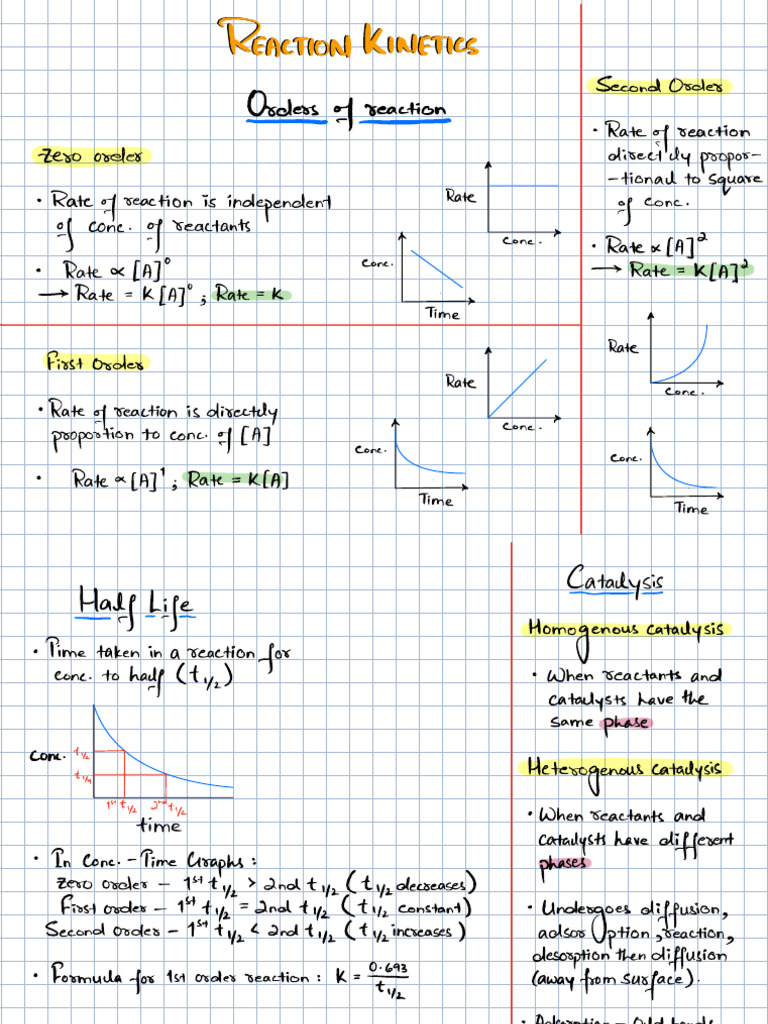 REACTION KINETICS
Orders of reaction
Zero order
• Rate of reaction is independent
of conc. of reactants
• Rate ∝ [A]⁰
→ Rate = K[A]⁰ ; Rate = K
Rate
Conc.
Conc.
Time
First Order
• Rate of reaction is directly
proportion to conc. of [A]
• Rate ∝ [A]¹ ; Rate = K[A]
Rate
Conc.
Conc.
Time
Second Order
• Rate of reaction
directly propor-
-tional to square
of conc.
• Rate ∝ [A]²
→ Rate = K[A]²
Rate
Conc.
Conc.
Time
Half Life
• Time taken in a reaction for
conc. to half (t1/2)
Conc.
t1/2
t1/4
1st t1/2
2nd t1/2
time
• In Conc. - Time Graphs:
Zero order – 1st t1/2 > 2nd t1/2 (t1/2 decreases)
First order – 1st t1/2 = 2nd t1/2 (t1/2 constant)
Second order – 1st t1/2 < 2nd t1/2 (t1/2 increases)
• Formula for 1st order reaction: K = 0.693/t1/2
Catalysis
Homogenous catalysis
• When reactants and
catalysts have the
same phase
Heterogenous catalysis
• When reactants and
catalysts have different
phases
• Undergoes diffusion,
adsorption, reaction,
desorption then diffusion
(away from surface).